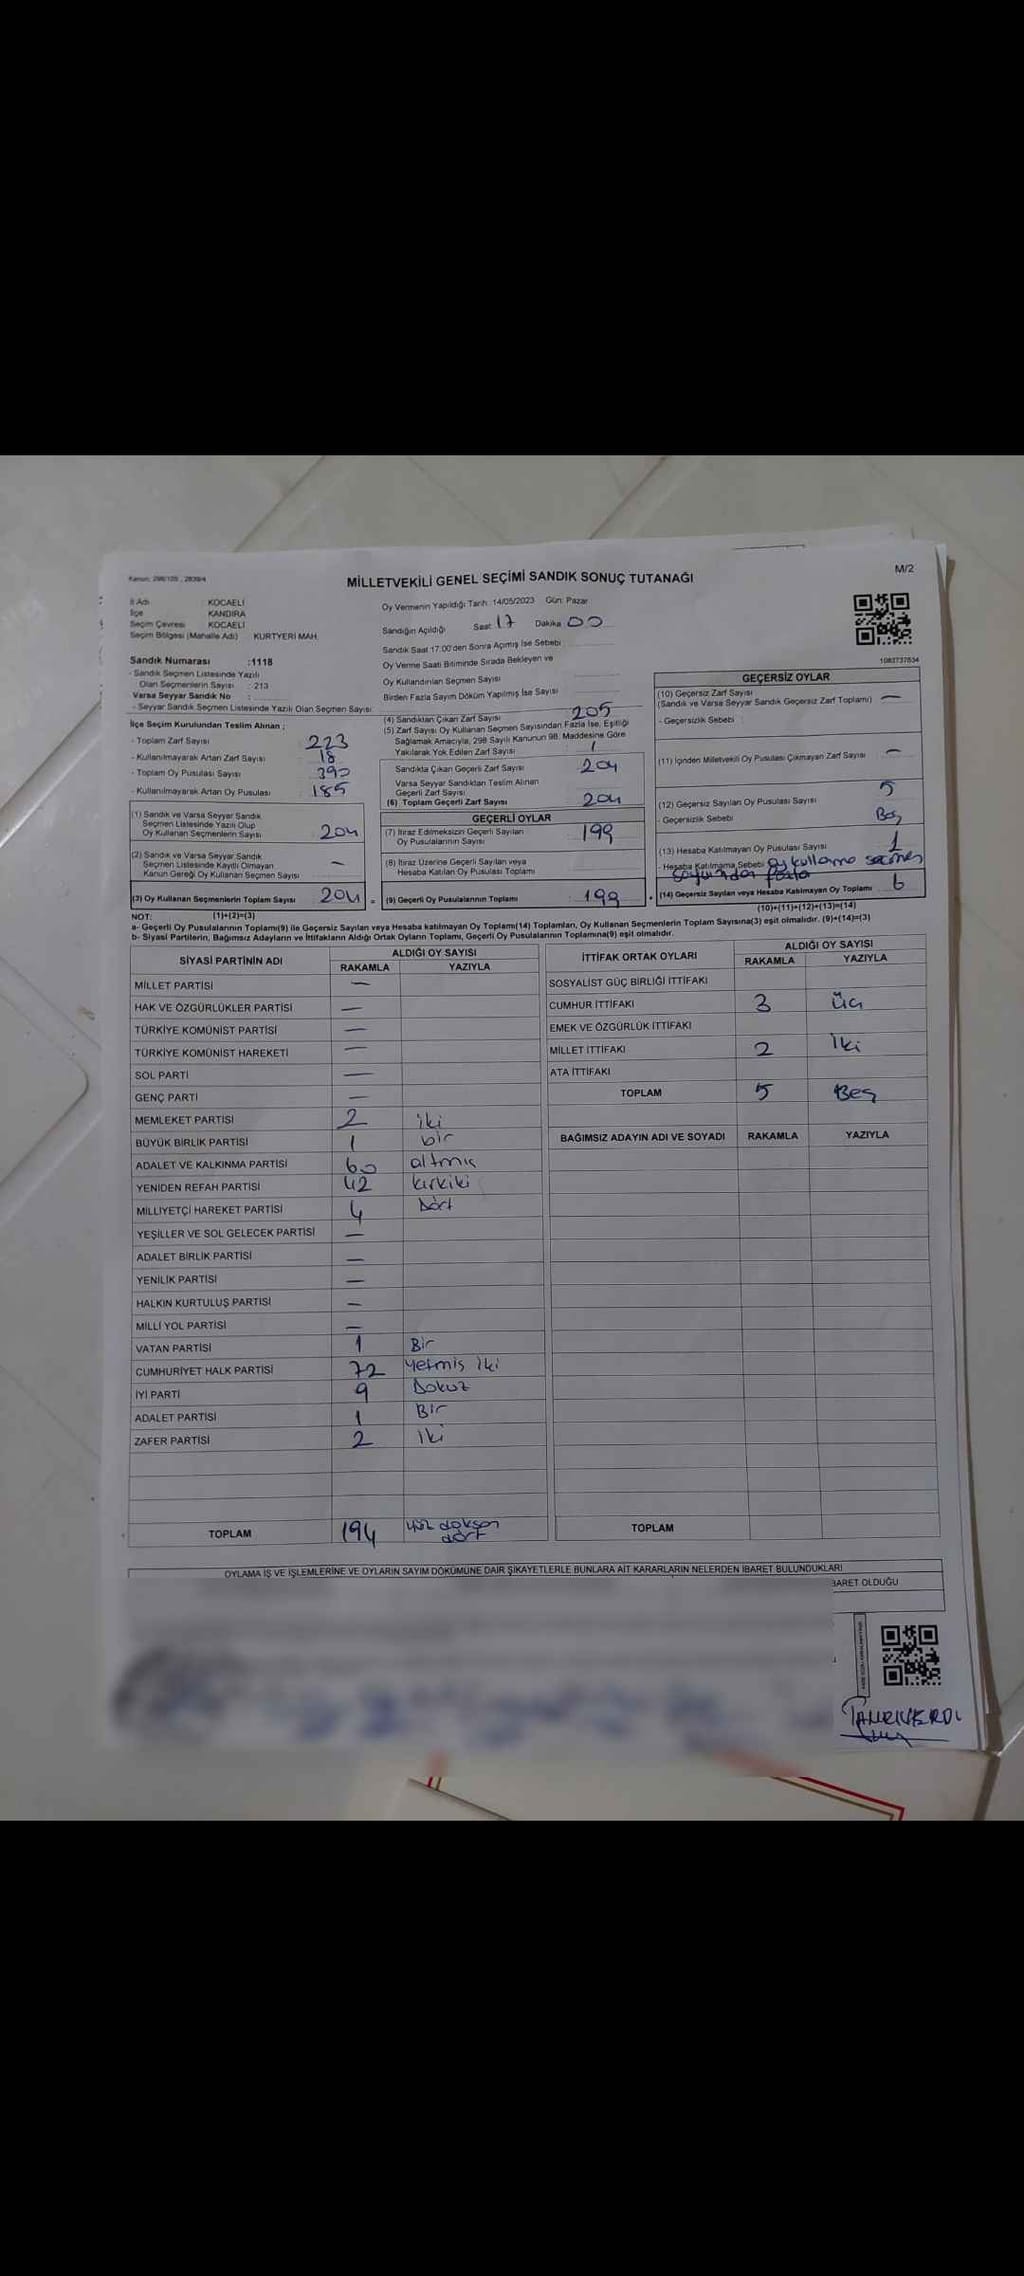 Kanun: 298/105 , 2839/4
M/2
MİLLETVEKİLİ GENEL SEÇİMİ SANDIK SONUÇ TUTANAĞI
İl Adı : KOCAELİ
İlçe : KANDIRA
Seçim Çevresi : KOCAELİ
Seçim Bölgesi (Mahalle Adı) KURTYERİ MAH.
Sandık Numarası :1118
- Sandık Seçmen Listesinde Yazılı
Olan Seçmenlerin Sayısı : 213
Varsa Seyyar Sandık No :
- Seyyar Sandık Seçmen Listesinde Yazılı Olan Seçmen Sayısı:
İlçe Seçim Kurulundan Teslim Alınan ;
- Toplam Zarf Sayısı 223
- Kullanılmayarak Artan Zarf Sayısı 18
- Toplam Oy Pusulası Sayısı 390
- Kullanılmayarak Artan Oy Pusulası 185
(1) Sandık ve Varsa Seyyar Sandık
Seçmen Listesinde Yazılı Olup
Oy Kullanan Seçmenlerin Sayısı 204
(2) Sandık ve Varsa Seyyar Sandık
Seçmen Listesinde Kayıtlı Olmayan
Kanun Gereği Oy Kullanan Seçmen Sayısı —
(3) Oy Kullanan Seçmenlerin Toplam Sayısı 204 =
(1)+(2)=(3)
Oy Vermenin Yapıldığı Tarih: 14/05/2023 Gün: Pazar
Sandığın Açıldığı Saat 17 Dakika 00
Sandık Saat 17:00'den Sonra Açılmış İse Sebebi
Oy Verme Saati Bitiminde Sırada Bekleyen ve
Oy Kullandırılan Seçmen Sayısı
Birden Fazla Sayım Döküm Yapılmış İse Sayısı
(4) Sandıktan Çıkan Zarf Sayısı 205
(5) Zarf Sayısı Oy Kullanan Seçmen Sayısından Fazla İse, Eşitliği
Sağlamak Amacıyla, 298 Sayılı Kanunun 98. Maddesine Göre
Yakılarak Yok Edilen Zarf Sayısı 1
Sandıkta Çıkan Geçerli Zarf Sayısı 204
Varsa Seyyar Sandıktan Teslim Alınan
Geçerli Zarf Sayısı
(6) Toplam Geçerli Zarf Sayısı 204
GEÇERLİ OYLAR
(7) İtiraz Edilmeksizin Geçerli Sayılan
Oy Pusulalarının Sayısı 199
(8) İtiraz Üzerine Geçerli Sayılan veya
Hesaba Katılan Oy Pusulası Toplamı
(9) Geçerli Oy Pusulalarının Toplamı 199 +
1083737834
GEÇERSİZ OYLAR
(10) Geçersiz Zarf Sayısı
(Sandık ve Varsa Seyyar Sandık Geçersiz Zarf Toplamı) —
- Geçersizlik Sebebi :
(11) İçinden Milletvekili Oy Pusulası Çıkmayan Zarf Sayısı —
(12) Geçersiz Sayılan Oy Pusulası Sayısı 5
- Geçersizlik Sebebi Boş
(13) Hesaba Katılmayan Oy Pusulası Sayısı 1
- Hesaba Katılmama Sebebi oy kullanma seçmen
sayısından fazla
(14) Geçersiz Sayılan veya Hesaba Katılmayan Oy Toplamı 6
(10)+(11)+(12)+(13)=(14)
NOT:
a- Geçerli Oy Pusulalarının Toplamı(9) ile Geçersiz Sayılan veya Hesaba katılmayan Oy Toplamı(14) Toplamları, Oy Kullanan Seçmenlerin Toplam Sayısına(3) eşit olmalıdır. (9)+(14)=(3)
b- Siyasi Partilerin, Bağımsız Adayların ve İttifakların Aldığı Ortak Oyların Toplamı, Geçerli Oy Pusulalarının Toplamına(9) eşit olmalıdır.
SİYASİ PARTİNİN ADI ALDIĞI OY SAYISI
RAKAMLA YAZIYLA
MİLLET PARTİSİ —
HAK VE ÖZGÜRLÜKLER PARTİSİ —
TÜRKİYE KOMÜNİST PARTİSİ —
TÜRKİYE KOMÜNİST HAREKETİ —
SOL PARTİ —
GENÇ PARTİ —
MEMLEKET PARTİSİ 2 iki
BÜYÜK BİRLİK PARTİSİ 1 bir
ADALET VE KALKINMA PARTİSİ 60 altmış
YENİDEN REFAH PARTİSİ 42 kırkiki
MİLLİYETÇİ HAREKET PARTİSİ 4 Dört
YEŞİLLER VE SOL GELECEK PARTİSİ —
ADALET BİRLİK PARTİSİ —
YENİLİK PARTİSİ —
HALKIN KURTULUŞ PARTİSİ —
MİLLİ YOL PARTİSİ —
VATAN PARTİSİ 1 Bir
CUMHURİYET HALK PARTİSİ 72 Yetmiş iki
İYİ PARTİ 9 Dokuz
ADALET PARTİSİ 1 Bir
ZAFER PARTİSİ 2 iki
TOPLAM 194 yüz doksan
dört
İTTİFAK ORTAK OYLARI ALDIĞI OY SAYISI
RAKAMLA YAZIYLA
SOSYALİST GÜÇ BİRLİĞİ İTTİFAKI
CUMHUR İTTİFAKI 3 üç
EMEK VE ÖZGÜRLÜK İTTİFAKI
MİLLET İTTİFAKI 2 iki
ATA İTTİFAKI
TOPLAM 5 Beş
BAĞIMSIZ ADAYIN ADI VE SOYADI RAKAMLA YAZIYLA
TOPLAM
OYLAMA İŞ VE İŞLEMLERİNE VE OYLARIN SAYIM DÖKÜMÜNE DAİR ŞİKAYETLERLE BUNLARA AİT KARARLARIN NELERDEN İBARET BULUNDUKLARI
BARET OLDUĞU
TANRIVERDİ